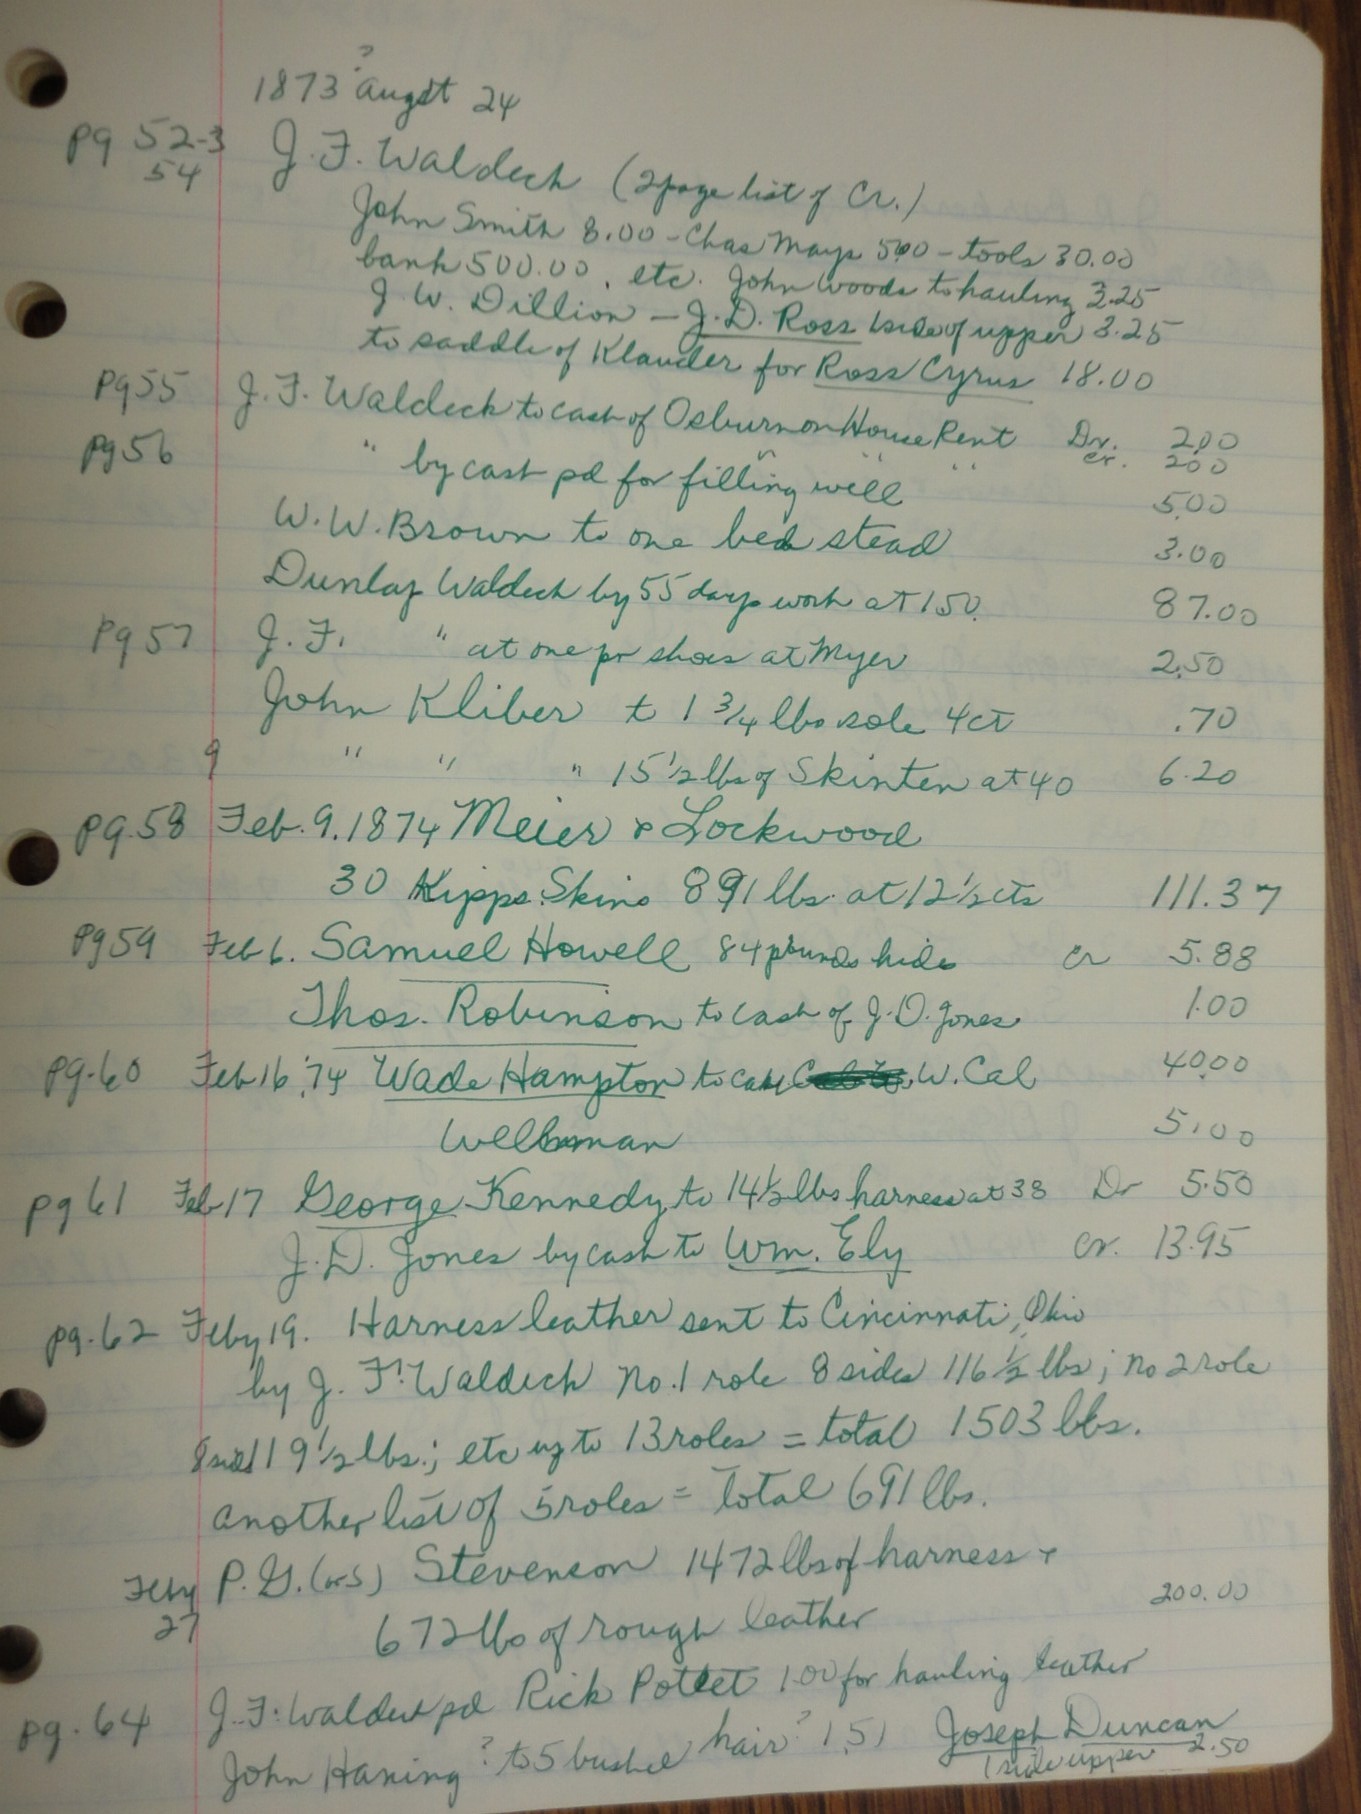 ?
1873 Augst 24
pg 52-3 J. F. Waldeck (2 page list of Cr.)
54
John Smith 8.00 - Chas Mays 500 - tools 30.00
bank 500.00, etc. John Woods to hauling 3.25
J. W. Dillion - J. D. Ross 1 side of upper 3.25
to saddle of Klauder for Ross Cyrus 18.00
pg 55 J. F. Waldeck to cash of Osburn on House Rent Dr. 200
" " " cr. 200
pg 56 " by cash pd for filling well 5.00
W. W. Brown to one bed stead 3.00
Dunlap Waldeck by 55 days work at 1.50. 87.00
pg 57 J. F. " at one pr shoes at Myer 2.50
John Kliber to 1 3/4 lbs sole 4ct .70
9 " " " 15 1/2 lbs of Skinten at 40 6.20
pg. 58 Feb. 9. 1874 Meier & Lockwood
30 Kipps Skins 891 lbs. at 12 1/2 cts 111.37
pg 59 Feb 6. Samuel Howell 84 pounds hide cr 5.88
Thos. Robinson to cash of J. D. Jones 1.00
pg. 60 Feb 16, '74 Wade Hampton to cash W. Cal 40.00
Wellman 5.00
pg 61 Feb 17 George Kennedy to 14 1/2 lbs harness at 38 Dr 5.50
J. D. Jones by cash to Wm. Ely cr. 13.95
pg. 62 Feby 19. Harness leather sent to Cincinnati, Ohio
by J. F. Waldeck No. 1 role 8 sides 116 1/2 lbs; no 2 role
8 sides 119 1/2 lbs.; etc up to 13 roles = total 1503 lbs.
another list of 5 roles = Total 691 lbs.
Feby P. G. (or S) Stevenson 1472 lbs of harness &
27 672 lbs of rough leather 200.00
pg. 64 J. F. Waldeck pd Rick Pottet 1.00 for hauling leather
John Haning ? to 5 bushel hair ? 1.51 Joseph Duncan
1 side upper 2.50